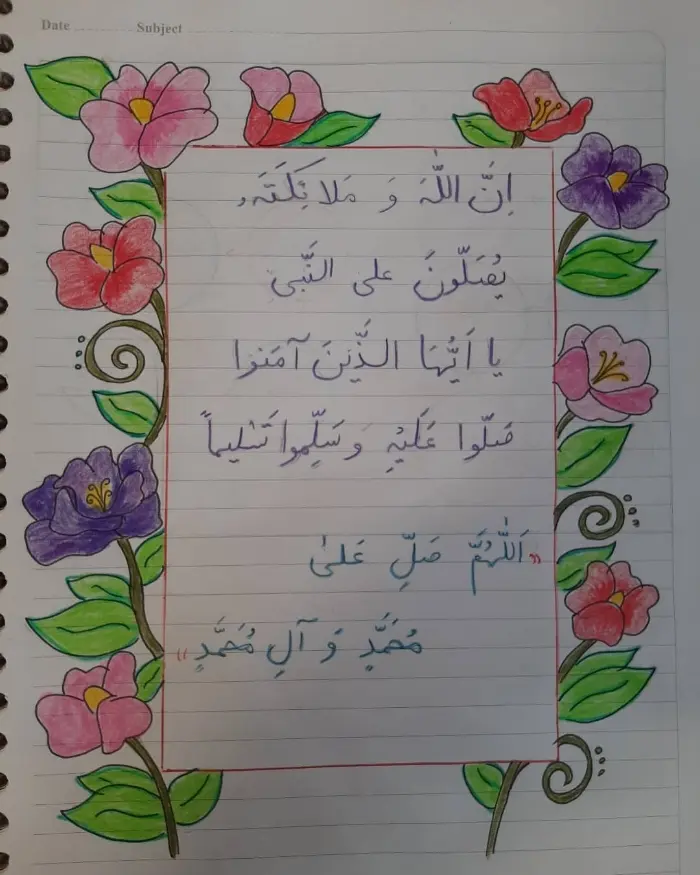 Date ............... Subject ...............
اِنَّ اللّٰهَ وَ مَلائِكَتَهُ
يُصَلّونَ علی النَّبی
یا اَیُّهَا الَّذَّینَ آمَنوا
صَلّوا عَلَیْهِ وَ سَلِّموا تَسْلیماً
«اَللّٰهُمَّ صَلِّ عَلیٰ
مُحَمَّدٍ وَ آلِ مُحَمَّدٍ»